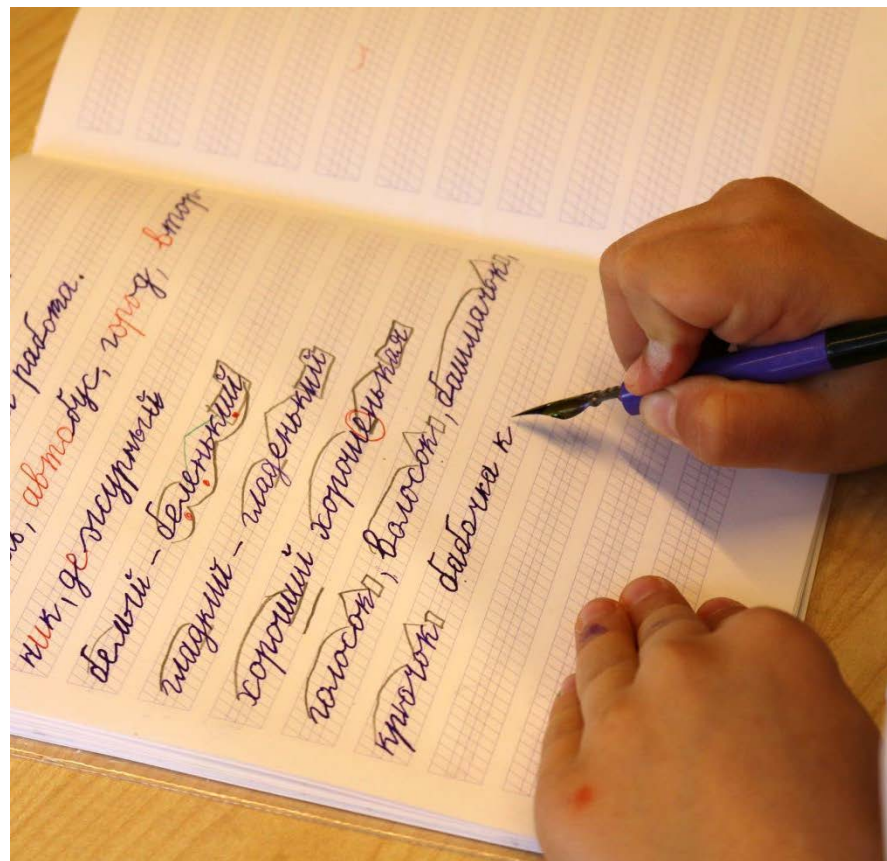 работа.
автобус, город, втор-
ник, дежурный
белый - беленький
гладкий - гладенький
хороший хорошенькая
голосок, волосок, башмачок,
крючок бабочка к